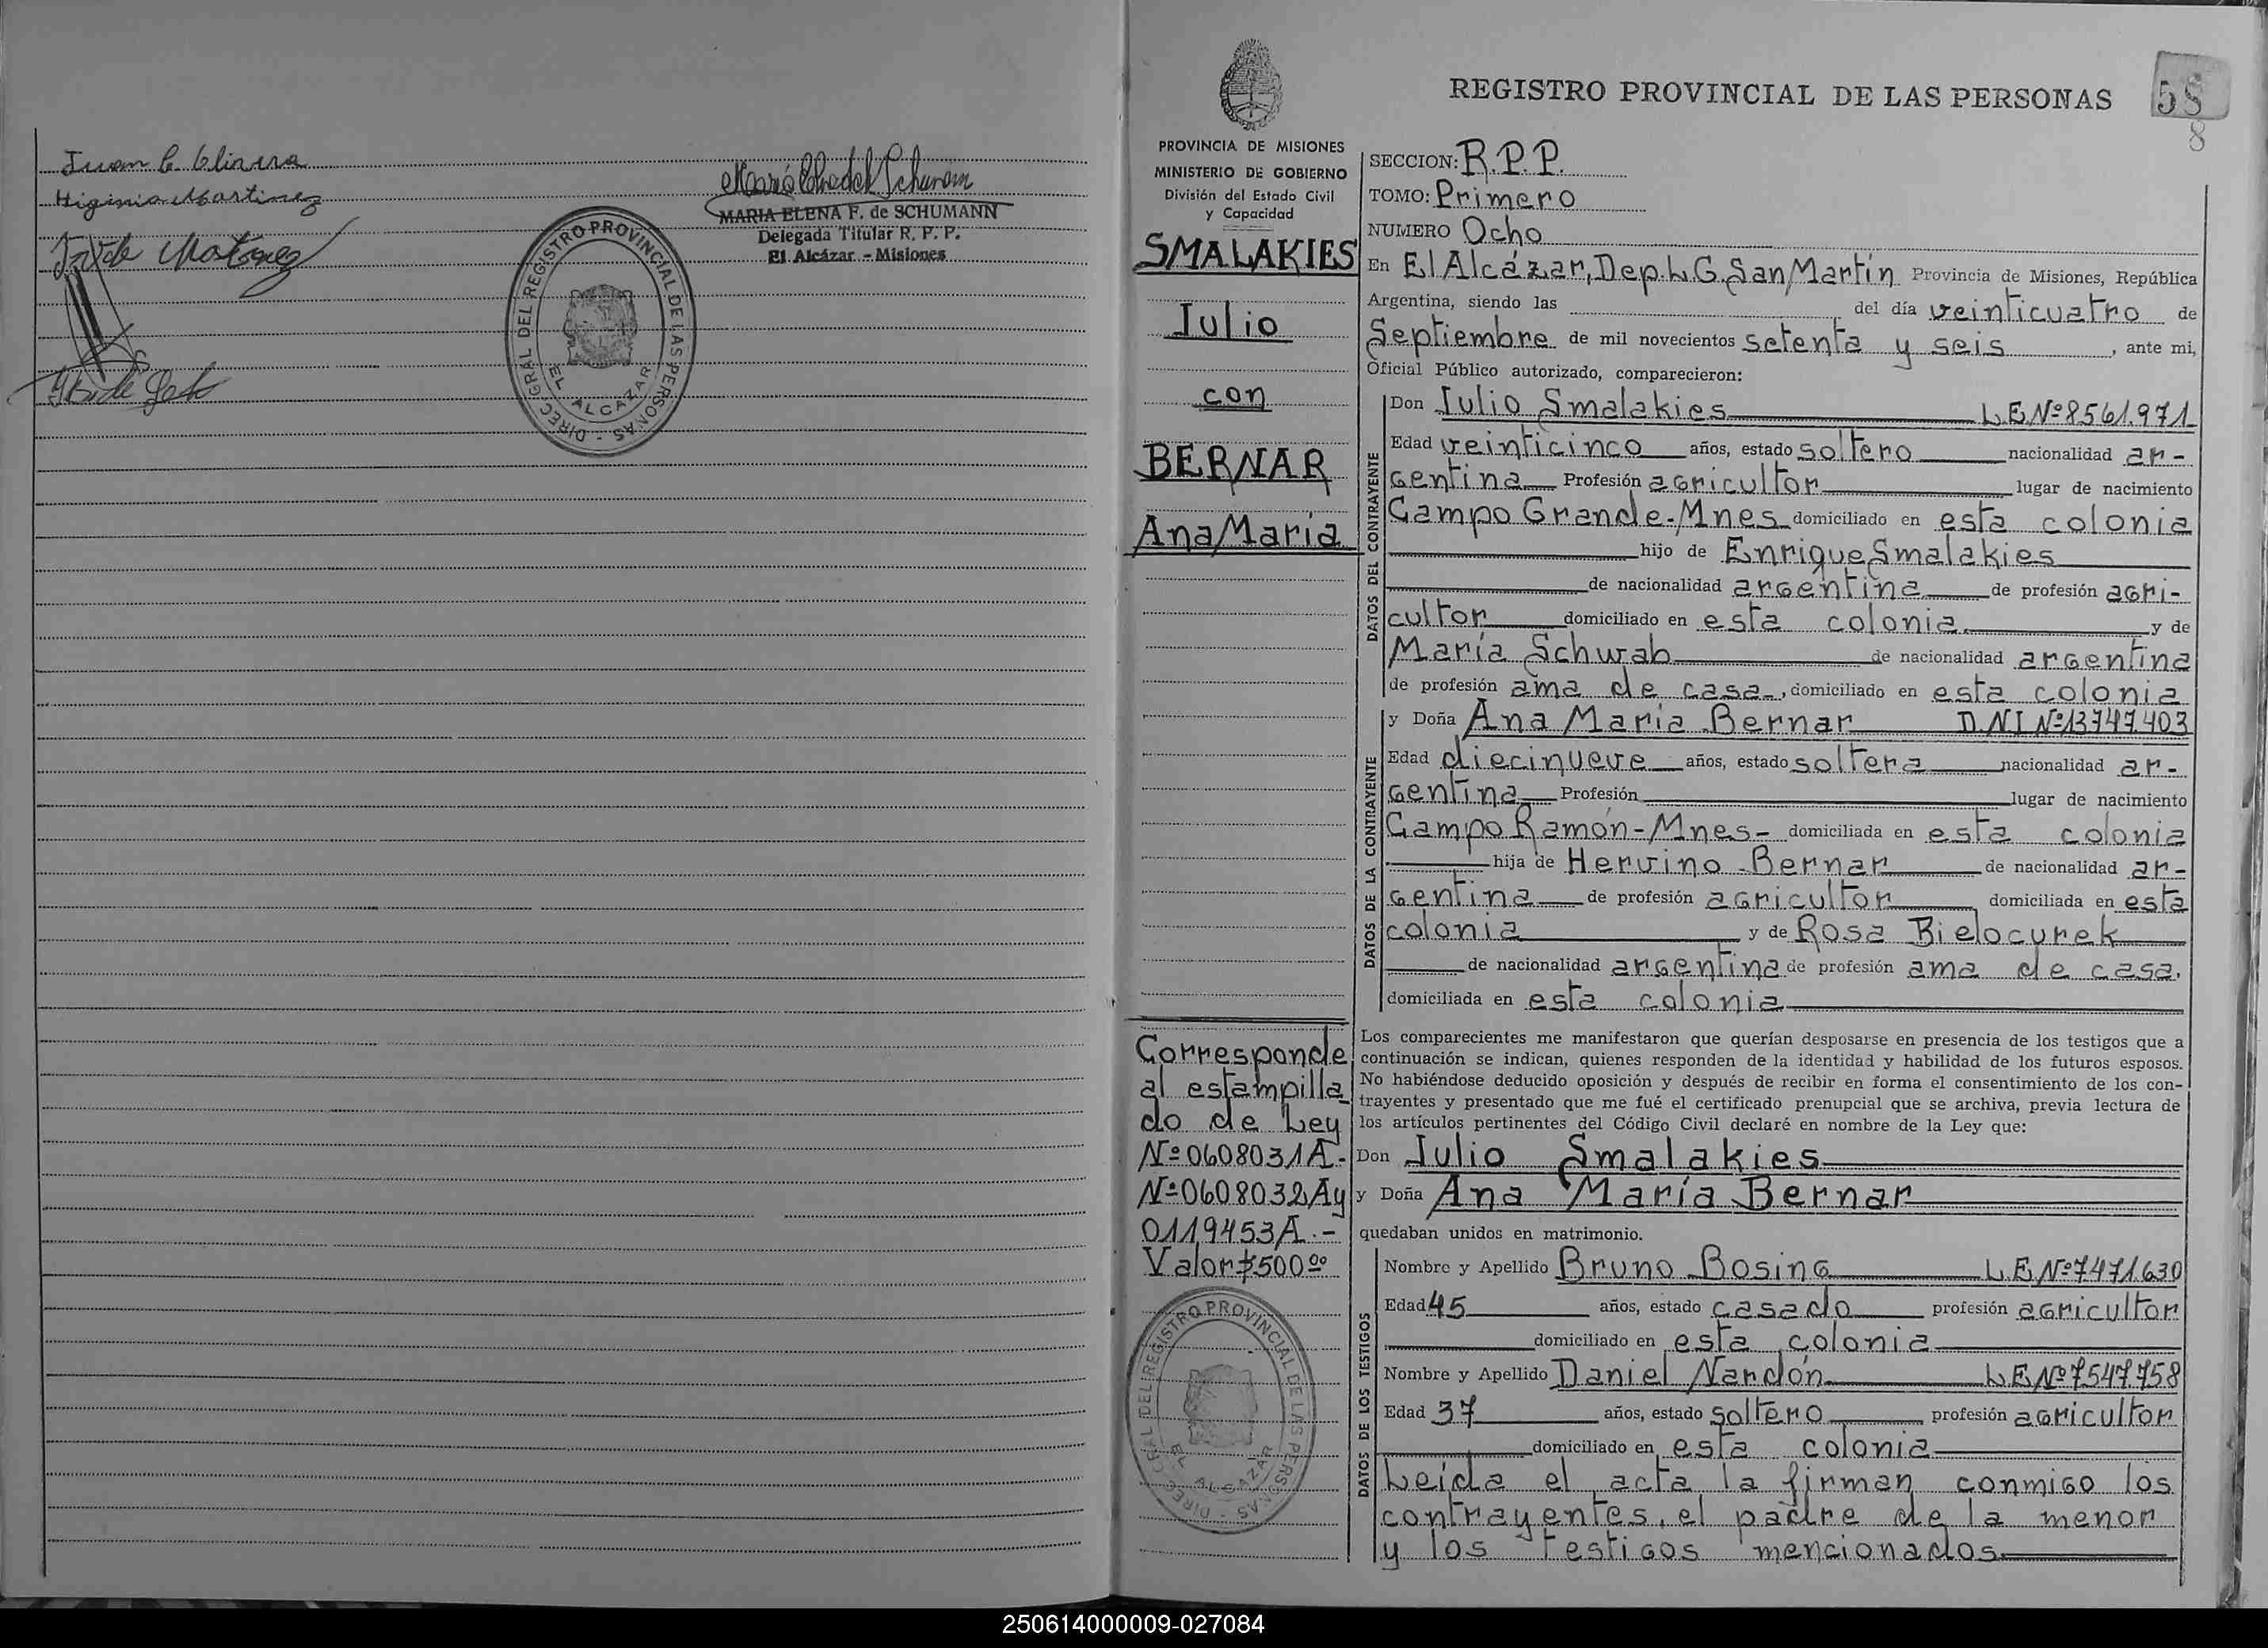 Juan C.
Higinio Martinez
Maria Elena F de Schumann
MARIA ELENA F. de SCHUMANN
Delegada Titular R. P. P.
El Alcázar - Misiones
DIREC GRAL DEL REGISTRO PROVINCIAL DE LAS PERSONAS -
EL ALCAZAR
REGISTRO PROVINCIAL DE LAS PERSONAS
58
8
PROVINCIA DE MISIONES
MINISTERIO DE GOBIERNO
División del Estado Civil
y Capacidad
SMALAKIES
Julio
con
BERNAR
Ana María
SECCION: R.P.P.
TOMO: Primero
NUMERO Ocho
En El Alcázar, Dep. L.G. San Martín Provincia de Misiones, República
Argentina, siendo las del día veinticuatro de
Septiembre de mil novecientos setenta y seis, ante mi,
Oficial Público autorizado, comparecieron:
DATOS DEL CONTRAYENTE
Don Julio Smalakies L.E.Nº8561.971
Edad veinticinco años, estado soltero nacionalidad ar-
gentina Profesión agricultor lugar de nacimiento
Campo Grande-Mnes domiciliado en esta colonia
hijo de Enrique Smalakies
de nacionalidad argentina de profesión agri-
cultor domiciliado en esta colonia y de
María Schwab de nacionalidad argentina
de profesión ama de casa, domiciliado en esta colonia
DATOS DE LA CONTRAYENTE
y Doña Ana María Bernar D.N.I Nº13747.403
Edad diecinueve años, estado soltera nacionalidad ar-
gentina Profesión lugar de nacimiento
Campo Ramón-Mnes- domiciliada en esta colonia
hija de Hervino Bernar de nacionalidad ar-
gentina de profesión agricultor domiciliada en esta
colonia y de Rosa Bielocurek
de nacionalidad argentina de profesión ama de casa,
domiciliada en esta colonia
Corresponde
al estampilla
do de Ley
Nº0608031A-
Nº0608032A y
0119453A.-
Valor $500 00
DIREC GRAL DEL REGISTRO PROVINCIAL DE LAS PERSONAS -
EL ALCAZAR
Los comparecientes me manifestaron que querían desposarse en presencia de los testigos que a
continuación se indican, quienes responden de la identidad y habilidad de los futuros esposos.
No habiéndose deducido oposición y después de recibir en forma el consentimiento de los con-
trayentes y presentado que me fué el certificado prenupcial que se archiva, previa lectura de
los artículos pertinentes del Código Civil declaré en nombre de la Ley que:
Don Julio Smalakies
y Doña Ana María Bernar
quedaban unidos en matrimonio.
DATOS DE LOS TESTIGOS
Nombre y Apellido Bruno Bosing L.E.Nº7471.630
Edad 45 años, estado casado profesión agricultor
domiciliado en esta colonia
Nombre y Apellido Daniel Nardón L.E.Nº7547.758
Edad 37 años, estado soltero profesión agricultor
domiciliado en esta colonia
Leída el acta la firman conmigo los
contrayentes, el padre de la menor
y los testigos mencionados.
250614000009-027084